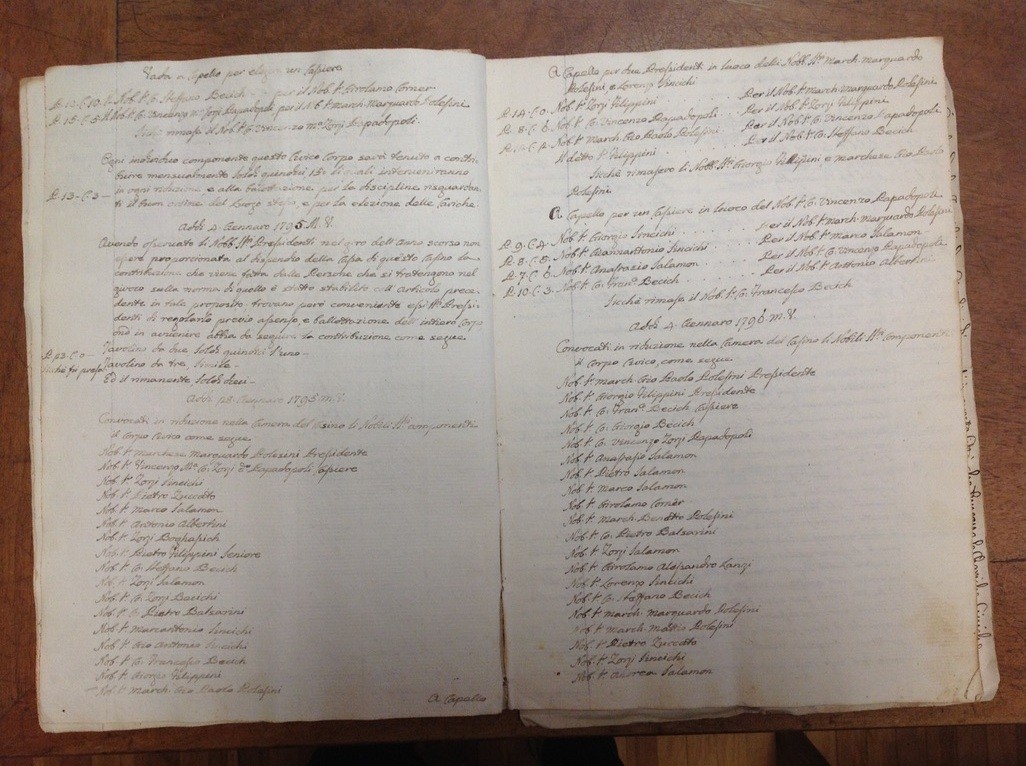 Vada a Capello per elegger un Cassiere
P. 12. C. 10. Il Nob. r C. Steffano Becich - - per il Nob. r Girolamo Corner
P. 15. C. 5. Il Nob. r C. Vincenzo Mª Zorzi Papadopoli per il Nob. r March. Marquardo Polesini
Sicchè rimase il Nob. r C. Vincenzo Mª Zorzi Papadopoli.
Ogni individuo componente questo Civico Corpo sarà tenuto a contri-
buire mensualmente soldi quindici 15: li quali interveniranno
in ogni riduzione e alla ballottazione per la disciplina risguardan-
P. 13 - C. 3 - te il buon ordine del Luogo stesso, e per la elezione delle Cariche.
Addì 4. Gennaro 1795 M. V.
Avendo osservato li Nobb. SSri Pressidenti nel giro dell'Anno scorso non
esser proporzionata al dispendio della Casa di questo Casino la
contribuzione che viene fatta dalle Persone che si trattengono nel
giuoco sulla norma di quello è stato stabilito coll'Articolo prece-
dente in tale proposito, trovano però conveniente essi SSri Pressi-
denti di regolarlo previo assenso, e ballottazione dell'intiero Corpo
onde in avvenire abbia da seguire la contribuzione come segue
P. 12. C. 0 - Tavolino da due soldi quindici l'uno -
Sicchè fu presa Tavolino da tre, simile -
Ed il rimanente soldi dieci -
Addì 18. Gennaro 1795 m. V.
Convocati in riduzione nella Camera del Casino li Nobili SSri componenti
il Corpo Civico come segue
Nob. r Marchese Marquardo Polesini Pressidente
Nob. r Vincenzo Mª C. Zorzi Papadopoli Cassiere
Nob. r Zorzi Sincichi
Nob. r Pietro Zuccato
Nob. r Marco Salamon
Nob. r Antonio Albertini
Nob. r Zorzi Boghassich
Nob. r Pietro Filippini Seniore
Nob. r C. Steffano Becich
Nob. r Zorzi Salamon
Nob. r C. Zorzi Becichi
Nob. r C. Pietro Balzarini
Nob. r Marcantonio Sincichi
Nob. r Gio Antonio Sincichi
Nob. r C. Francesco Becich
Nob. r Giorgio Filippini
Nob. r March. Gio Paolo Polesini
A Capello
A Capello per due Pressidenti in luoco delli Nobb. SSri March. Marquardo
Polesini e Lorenzo Sincichi
P. 14. C. 0. Nob. r Zorzi Filippini . . . . . Per il Nob. r March. Marquardo Polesini
P. 8. C. 6. Nob. r C. Vincenzo Papadopoli . . . Per il Nob. r Zorzi Filippini.
P. 10. C. 4. Nob. r March. Gio Paolo Polesini . . Per il Nob. r C. Vincenzo Papadopoli
Il detto r Filippini . . . . Per il Nob. r C. Steffano Becich
Sicchè rimasero li Nobb. SSri Giorgio Filippini e Marchese Gio Paolo
Polesini
A Capello per un Cassiere in luoco del Nob. r C. Vincenzo Papadopoli
P. 9. C. 4. Nob. r Giorgio Sincichi . . . . . Per il Nob. r March. Marquardo Polesini
P. 8. C. 5. Nob. r Gianantonio Sincichi . . . Per il Nob. r Marco Salamon -
P. 7. C. 6. Nob. r Anastasio Salamon . . . . Per il Nob. r C. Vincenzo Papadopoli
P. 10. C. 3. Nob. r C. Franco Becich . . . . Per il Nob. r Antonio Albertini
Sicchè rimase il Nob. r C. Francesco Becich
Addì 4. Gennaro 1796. m. V.
Convocati in riduzione nella Camera del Casino li Nobili SSri Componenti
il Corpo Civico, come segue
Nob. r March. Gio Paolo Polesini Pressidente
Nob. r Giorgio Filippini Pressidente
Nob. r C. Franco Becich Cassiere
Nob. r C. Giorgio Becich
Nob. r C. Vincenzo Zorzi Papadopoli
Nob. r Anastasio Salamon
Nob. r Pietro Salamon
Nob. r Marco Salamon
Nob. r Girolamo Cornèr
Nob. r March. Benetto Polesini
Nob. r C. Pietro Balzarini
Nob. r Zorzi Salamon
Nob. r Girolamo Alessandro Lanzi
Nob. r Lorenzo Sincichi
Nob. r C. Steffano Becich
Nob. r March. Marquardo Polesini
Nob. r March. Mattio Polesini
Nob. r Pietro Zuccato
Nob. r Zorzi Sincichi
Nob. r Andrea Salamon